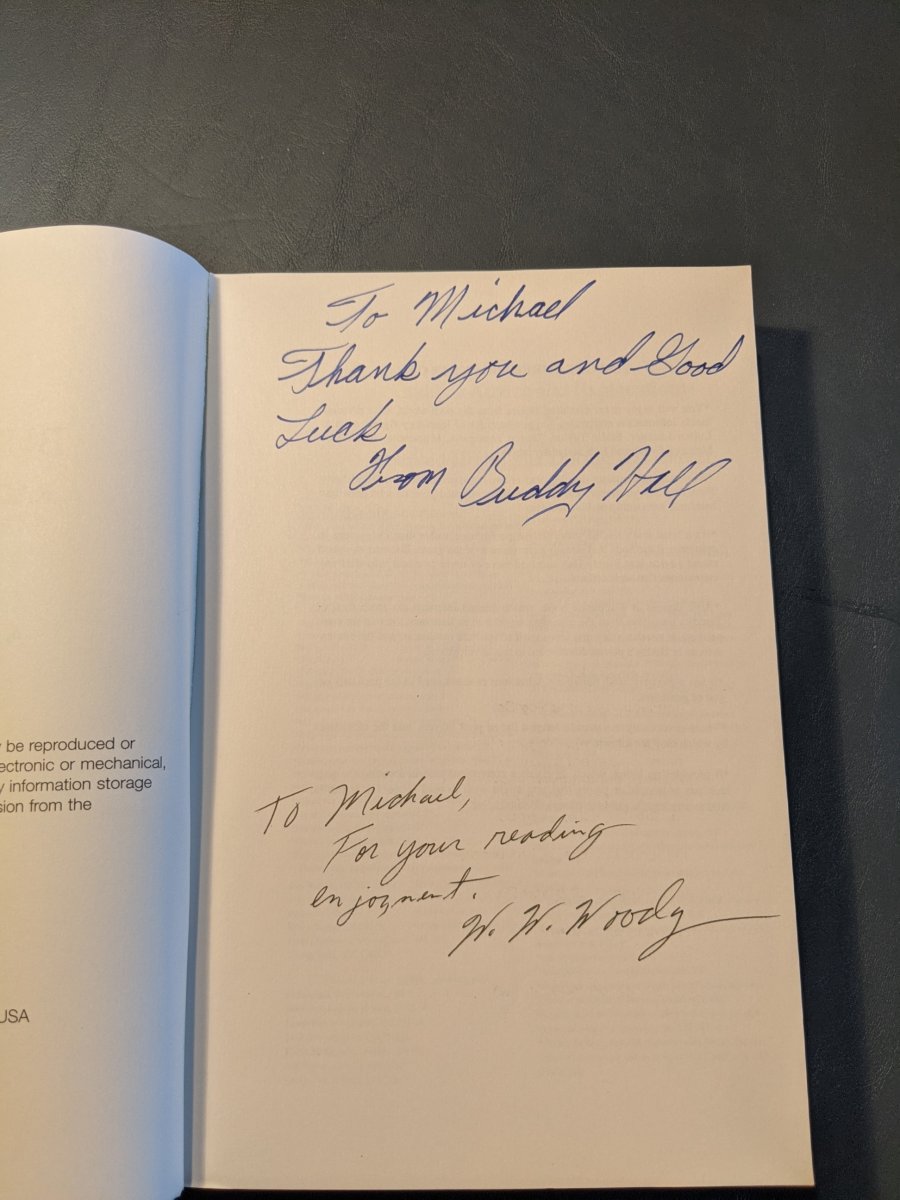 y be reproduced or
ectronic or mechanical,
y information storage
sion from the
USA
To Michael
Thank you and Good
Luck
From Buddy Hall
To Michael,
For your reading
enjoyment.
W. W. Woody